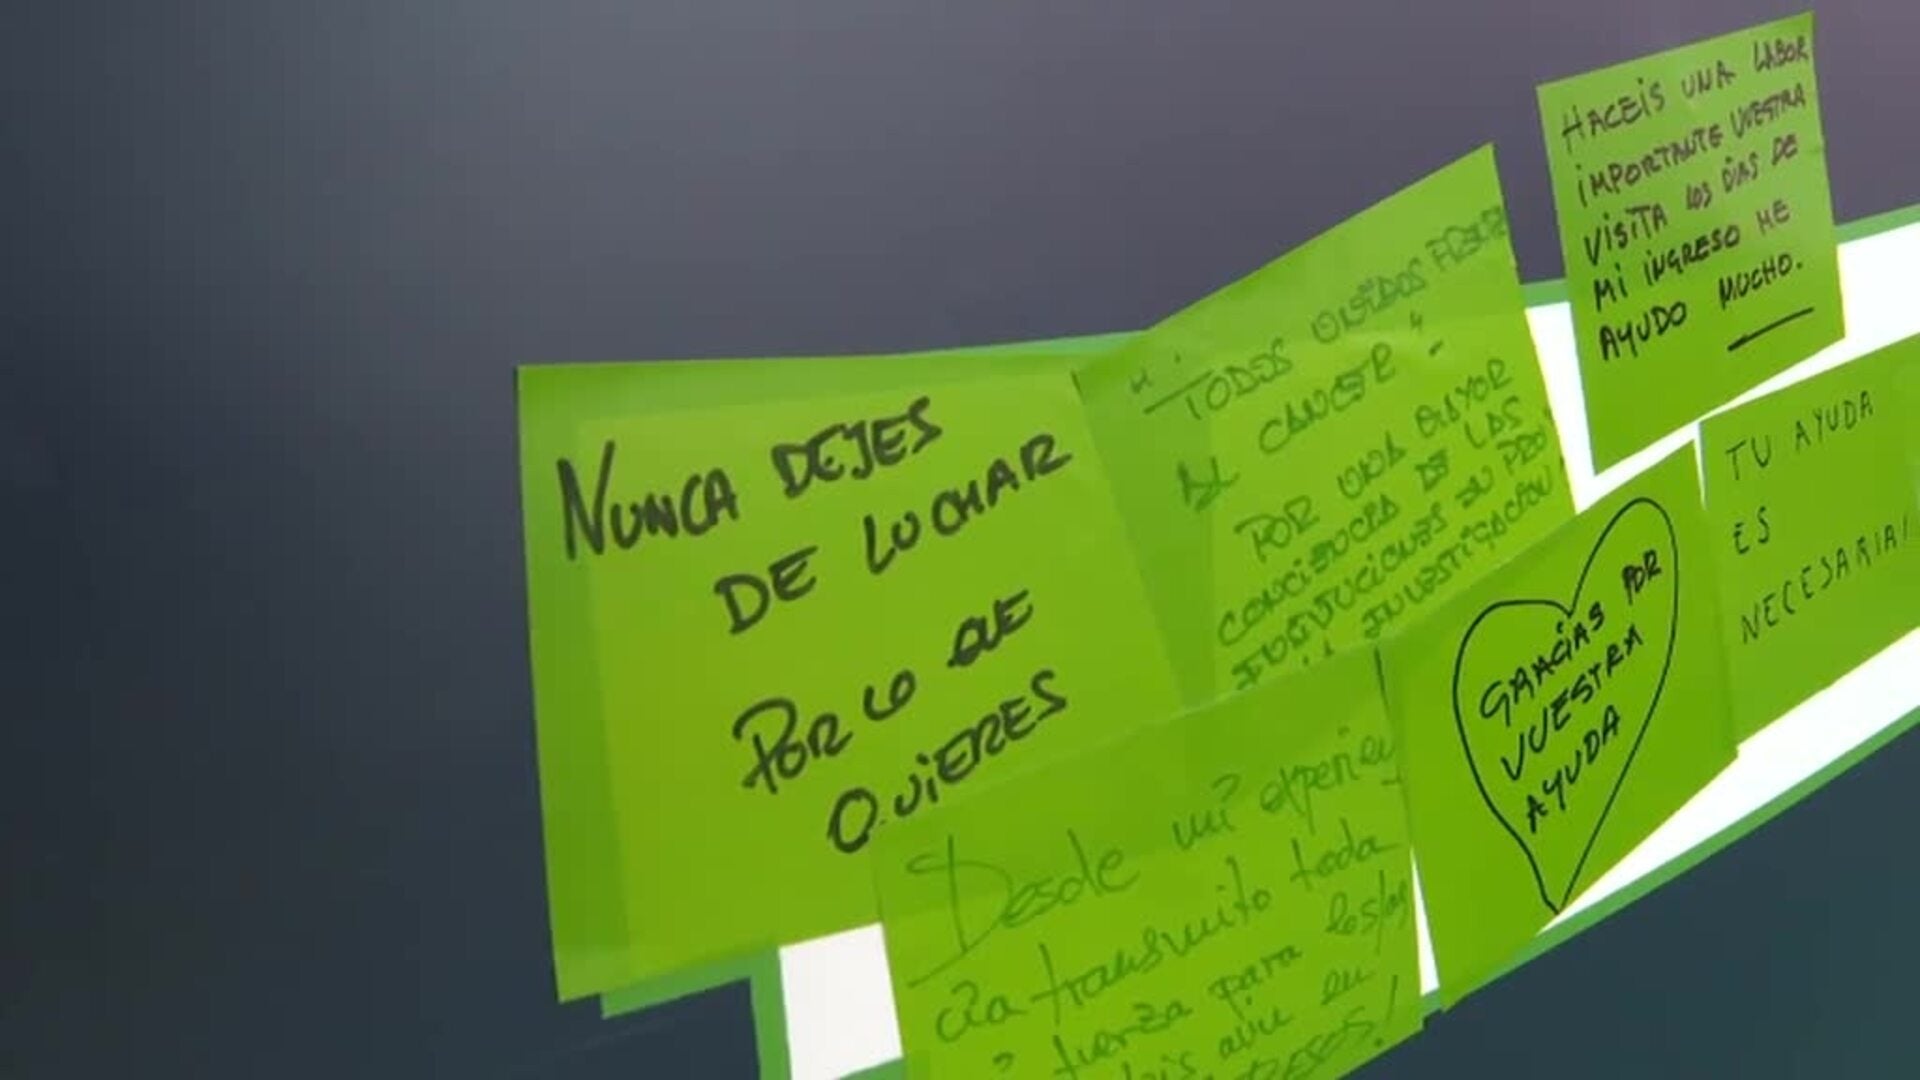 NUNCA DEJES
DE LUCHAR
POR LO QUE
QUIERES
TODOS UNIDOS FRENTE
AL CANCER
POR UNA MAYOR
CONCIENCIA DE LAS
INSTITUCIONES EN PRO
INVESTIGACION
HACEIS UNA LABOR
IMPORTANTE VUESTRA
VISITA LOS DIAS DE
MI INGRESO ME
AYUDO MUCHO.
Desde mi experien
cia transmito toda
mi fuerza para los/as
aún en
GRACIAS POR
VUESTRA
AYUDA
TU AYUDA
ES
NECESARIA!